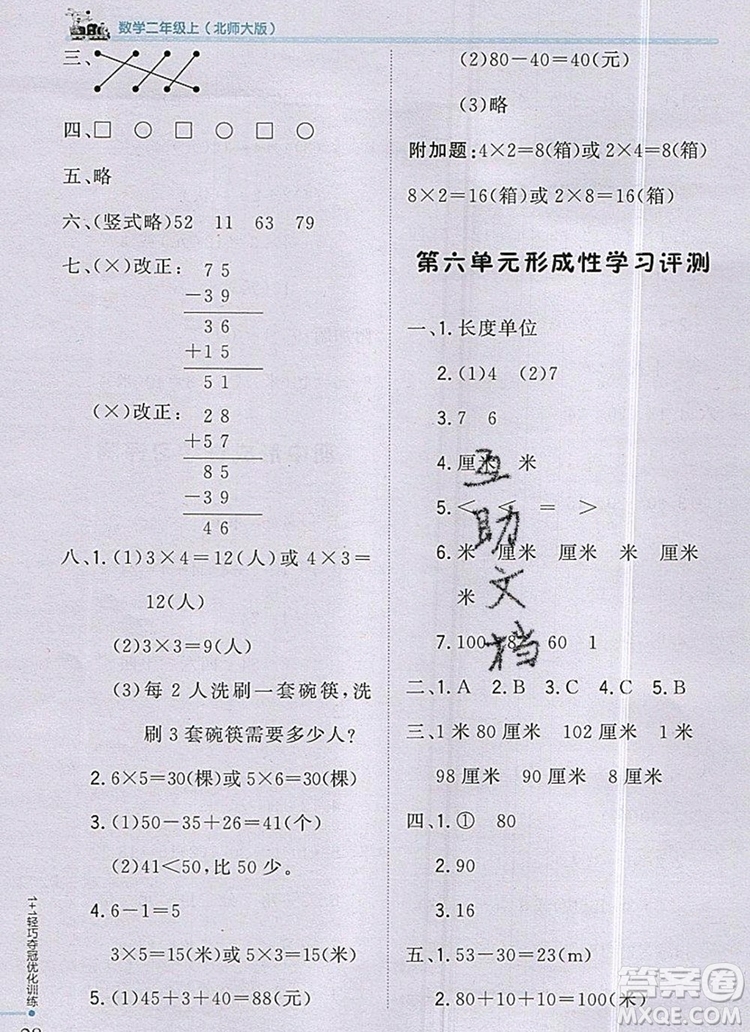 数学二年级上(北师大版)
三、
四、□ ○ □ ○ □ ○
五、略
六、(竖式略)52 11 63 79
七、(×)改正： 75
－39
36
＋15
51
(×)改正： 28
＋57
85
－39
46
八、1. (1)3×4=12(人)或 4×3=
12(人)
(2)3×3=9(人)
(3)每 2 人洗刷一套碗筷,洗
刷 3 套碗筷需要多少人?
2. 6×5=30(棵)或 5×6=30(棵)
3. (1)50－35＋26=41(个)
(2)41<50,比 50 少。
4. 6－1=5
3×5=15(米)或 5×3=15(米)
5. (1)45＋3＋40=88(元)
1+1轻巧夺冠优化训练
(2)80－40=40(元)
(3)略
附加题：4×2=8(箱)或 2×4=8(箱)
8×2=16(箱)或 2×8=16(箱)
第六单元形成性学习评测
一、1. 长度单位
2. (1)4 (2)7
3. 7 6
4. 厘米 米
5. < < = >
6. 米 厘米 厘米 米 厘米
米
7. 100 8 60 1
二、1. A 2. B 3. C 4. B 5. B
三、1 米 80 厘米 102 厘米 1 米
98 厘米 90 厘米 8 厘米
四、1. ① 80
2. 90
3. 16
五、1. 53－30=23(m)
2. 80＋20=100(厘米)
互助文档
答案圈
MXQE.COM